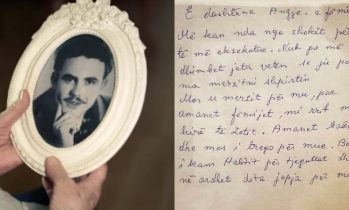 E dashtuna Angje. e fëmi
Më kan nda nga shokët për
të më ekzekutue. Nuk po më
dhimbet jeta vetem se ju po
ma merzitni shpirtin
Mos u merzit për mu, por
amanet fëmijët, mi rrit me
hirë të Zotit. Amanet
dhe mos i trego për mue. Bo
i kam Halilit për
në ardhët dita jepja për mu